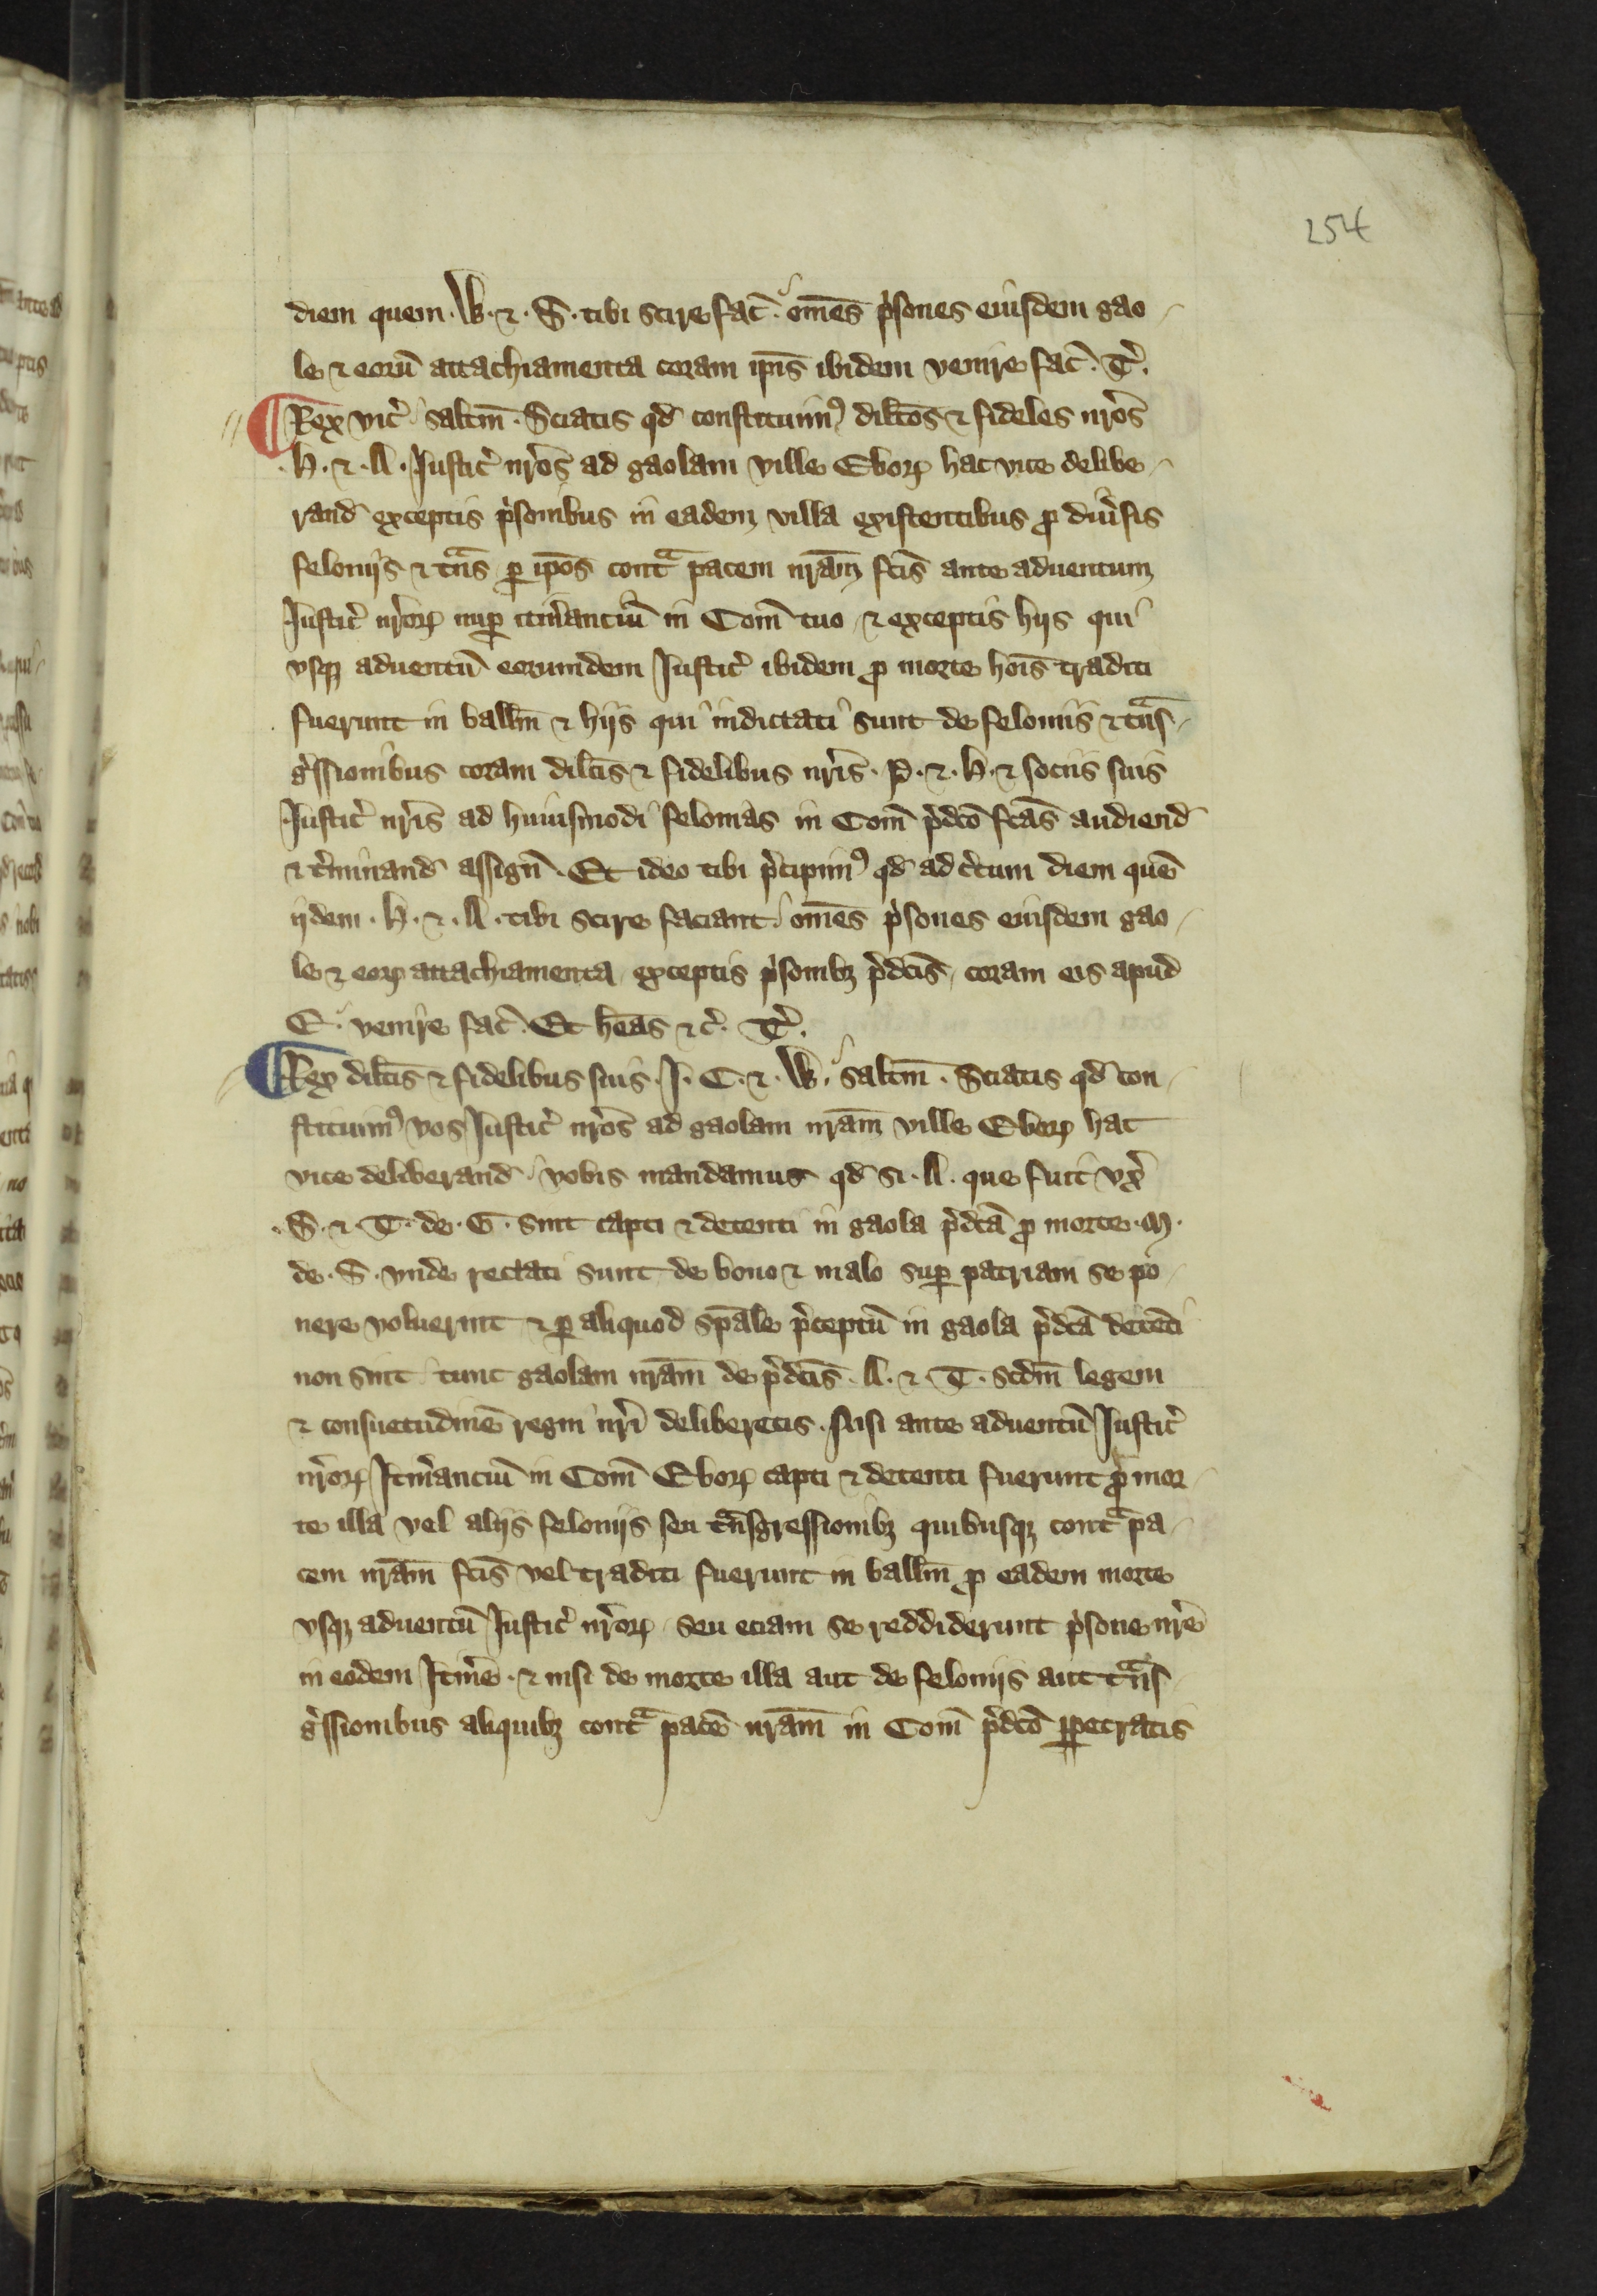 254
diem quem · W · ⁊ · S · tibi scire fac̃ · om̃es p'sones eiusdem gao
le ⁊ eorũ attachiamenta coram ip̃is ibidem venire fac̃ · T̃.
¶ Rex vic̃ saltm̃ · Sciatis qd̃ constituimꝰ dilc̃os ⁊ fideles nr̃os
· H · ⁊ · A · Justic̃ nr̃os ad gaolam ville Eboꝝ hac vice delibe
rand̃ exceptis p'sonibus in eadem villa existentibus ꝓ diũsis
feloniis ⁊ tñs ꝑ ip̃os contᵃ pacem nr̃am fc̃is ante aduentum
Justic̃ nr̃oꝝ nuꝑ itiñanciũ in Com̃ tuo ⁊ exceptis hijs qui
vsqꝫ aduentũ eorumdem Justic̃ ibidem ꝓ morte hoĩs traditi
fuerunt in ball̃m ⁊ hijs qui indictati sunt de feloniis ⁊ tᵃns
g̃ssionibus coram dilc̃is ⁊ fidelibus nr̃is · P · ⁊ · H · ⁊ sociis suis
Justic̃ nr̃is ad huiusmodi felonias in Com̃ p̃dc̃o fc̃as audiend̃
⁊ t̃minand̃ assign̄ · Et ideo tibi p̃cipimꝰ qd̃ ad c̃tum diem quẽ
ijdem · H · ⁊ · A · tibi scire faciant om̃es p'sones eiusdem gao
le ⁊ eoꝝ attachiamenta exceptis p'sonibꝫ p̃dc̃is coram eis apud
E · venire fac̃ · Et hẽas ⁊c̃ · T̃.
¶ Rex dilc̃is ⁊ fidelibus suis · J · C · ⁊ · W · saltm̃ · Sciatis qd̃ con
stituimꝰ vos Justic̃ nr̃os ad gaolam nr̃am ville Eboꝝ hac
vice deliberand̃ vobis mandamus qd̃ si · A · que fuit vx̃
· S · ⁊ · T · de · G · sint capti ⁊ detenti in gaola p̃dc̃a ꝓ morte · M ·
de · S · vnde rectati sunt de bono ⁊ malo suꝑ patriam se po
nere voluerint ⁊ ꝑ aliquod sp̃ale p̃ceptũ in gaola p̃dc̃a detẽti
non sint tunc gaolam nr̃am de p̃dc̃is · A · ⁊ · T · scd̃m legem
⁊ consuetudinẽ regni nr̃i deliberetis · Nisi ante aduentũ Justic̃
nr̃oꝝ Itiñanciũ in Com̃ Eboꝝ capti ⁊ detenti fuerunt ꝓ mor
te illa vel alijs feloniis seu tᵃnsgressionibꝫ quibusqꝫ contᵃ pa
cem nr̃am fc̃is vel traditi fuerunt in ball̃m ꝓ eadem morte
vsqꝫ aduentũ Justic̃ nr̃oꝝ seu eciam se reddiderunt p'sone nr̃e
in eodem Itiñe · ⁊ nisi de morte illa aut de feloniis aut tᵃns
g̃ssionibus aliquibꝫ contᵃ pacẽ nr̃am in Com̃ p̃dc̃o ꝑpetratis